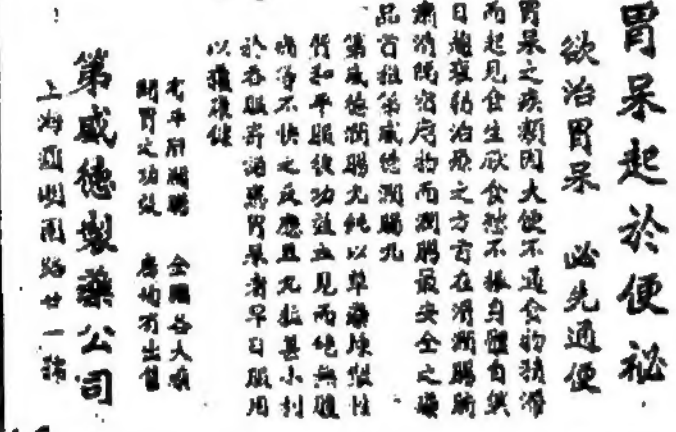 胃呆起於便祕
欲治胃呆 必先通便
胃呆之疾類因大便不通食物積滯
而起見食生厭食慾不振身體自然
日趨衰弱治療之方首在滑潤腸腑
肅清飽宿廢物而潤腸最安全之藥
品首推第威德潤腸丸
第威德潤腸丸純以草藥煉製性
質和平服後功效立見而絕無腹
痛等不快之反應且丸粒甚小利
於吞服奇誥患胃呆者早日服用
以獲康健
有平肝潤腸 全國各大藥
開胃之功效 房均有出售
第威德製藥公司
上海圓明園路廿一號